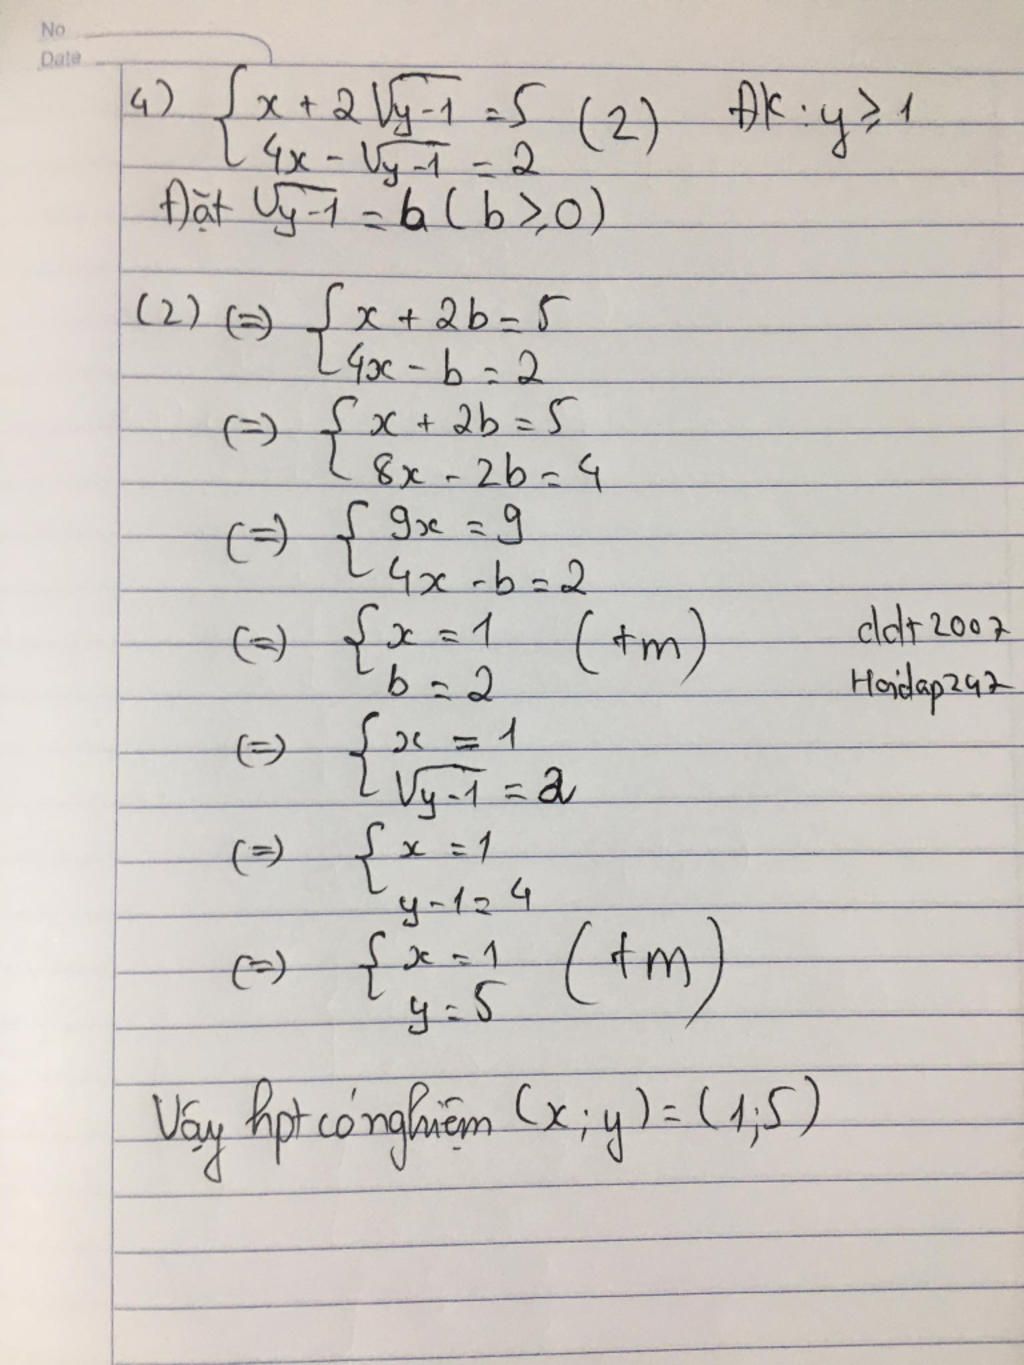 No
Date
4) { x + 2√(y-1) = 5 (2) ĐK: y ≥ 1
4x - √(y-1) = 2
Đặt √(y-1) = b (b ≥ 0)
(2) (=) { x + 2b = 5
4x - b = 2
(=) { x + 2b = 5
8x - 2b = 4
(=) { 9x = 9
4x - b = 2
(=) { x = 1 (tm)
b = 2
ddt2007
Hoidap247
(=) { x = 1
√(y-1) = 2
(=) { x = 1
y-1 = 4
(=) { x = 1 (tm)
y = 5
Vậy hpt có nghiệm (x; y) = (1; 5)